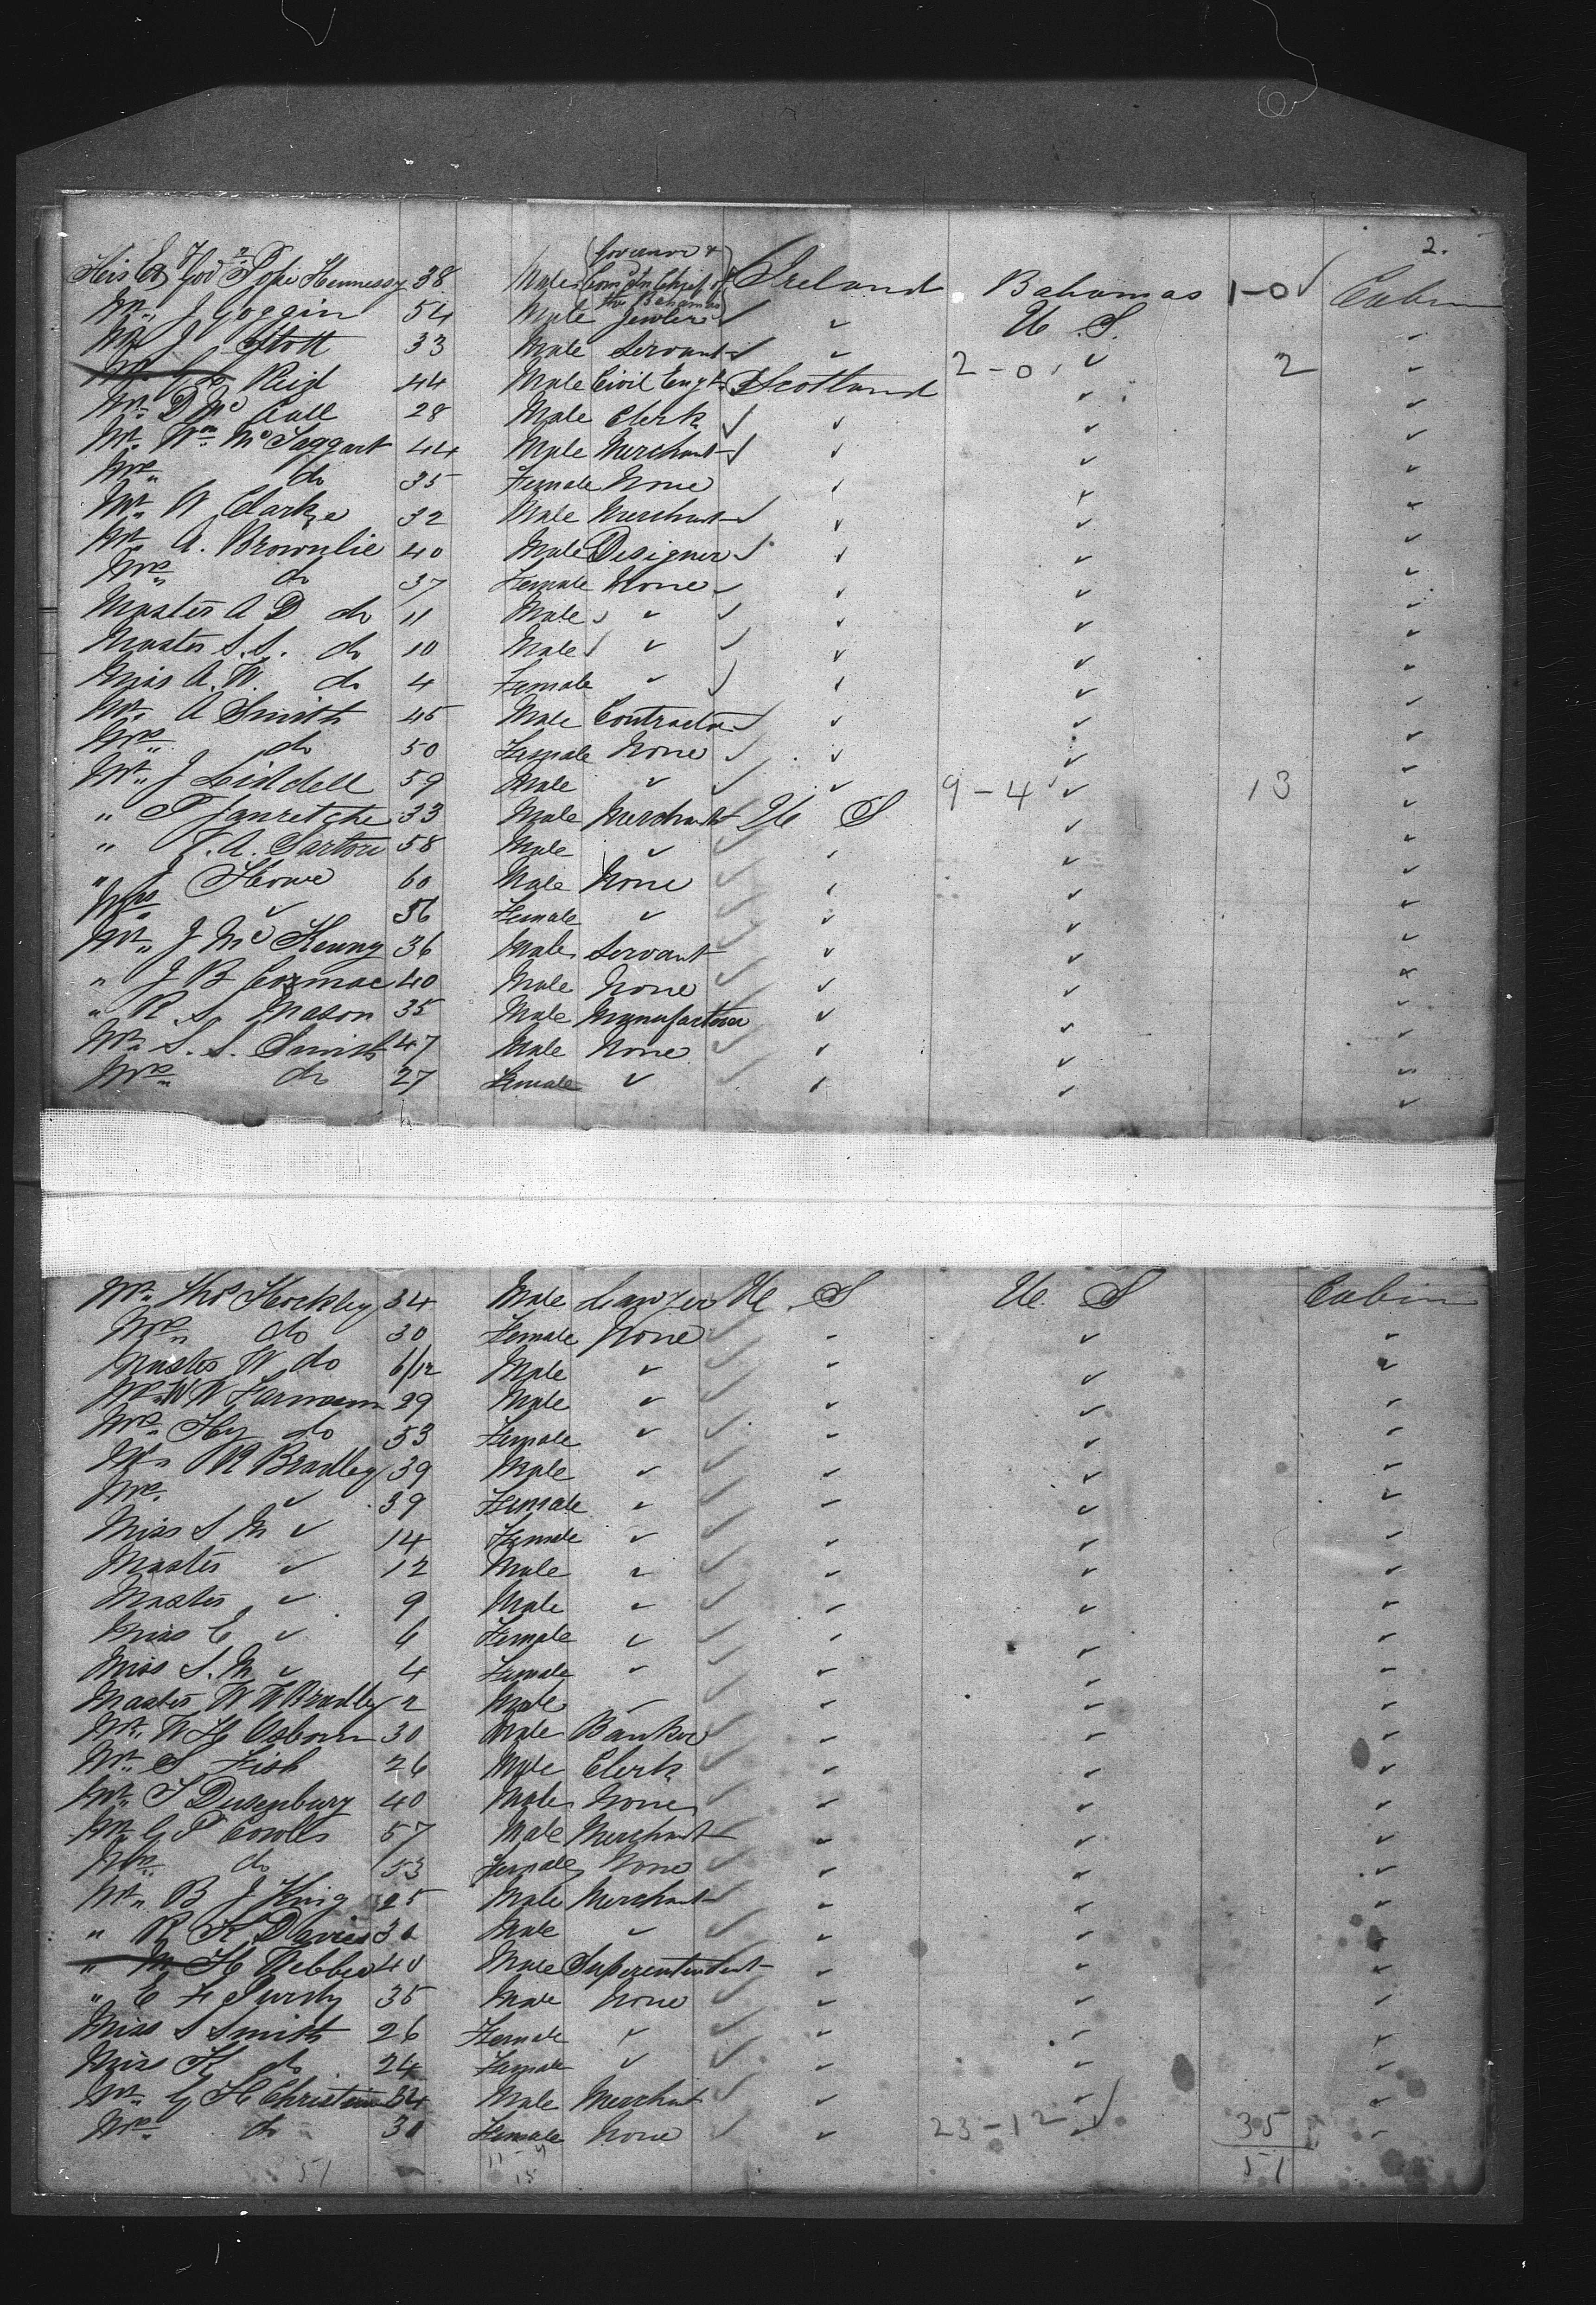 2.
His Ex Gov Pope Hennessy 38 Male Governor & Com In Chief of the Bahamas Ireland Bahamas 1-0 Cabin
Mr. J Goggin 54 Male Jewler ✓ ✓ U S. ✓
Mr J Stott 33 Male Servant ✓ ✓ 2-0 ✓ 2 ✓
Mr. Reid 44 Male Civil Engr Scotland ✓ ✓
Mr. D Mc Call 28 Male Clerk ✓ ✓ ✓ ✓
Mr. Wm. Mc Taggart 44 Male Merchant ✓ ✓ ✓ ✓
Mrs " do 35 Female None ✓ ✓ ✓
Mr. W Clarke 32 Male Merchant ✓ ✓ ✓ ✓
Mr. A. Brownlie 40 Male Designer ✓ ✓ ✓ ✓
Mrs " do 37 Female None ✓ ✓ ✓ ✓
Master A D do 11 Male ✓ ✓ ✓ ✓ ✓
Master S. S. do 10 Male ✓ ✓ ✓ ✓ ✓
Miss A. W. do 4 Female ✓ ✓ ✓ ✓ ✓
Mr. A Smith 45 Male Contractor ✓ ✓ ✓ ✓
Mrs " do 50 Female None ✓ ✓ ✓ ✓
Mr. J Liddell 59 Male ✓ ✓ ✓ 9-4 ✓ 13 ✓
" P Janretche 33 Male Merchant U S ✓ ✓
" J. A. Sartori 58 Male ✓ ✓ ✓ ✓ ✓
" J Howe 60 Male None ✓ ✓ ✓ ✓
Mrs ✓ 56 Female ✓ ✓ ✓ ✓ ✓
Mr. J Mc Kenny 36 Male Servant ✓ ✓ ✓ ✓
" J B Cozmac 40 Male None ✓ ✓ ✓ ✓
" R. S. Mason 35 Male Manufacturer ✓ ✓ ✓ ✓
Mr. S. S. Smith 47 Male None ✓ ✓ ✓ ✓
Mrs " do 27 Female ✓ ✓ ✓ ✓ ✓
Mr. Thos Hockley 34 Male Lawyer U. S U. S Cabin
Mrs " do 30 Female None ✓ ✓ ✓ ✓
Master W do 6/12 Male ✓ ✓ ✓ ✓ ✓
Mr. W W Farmam 29 Male ✓ ✓ ✓ ✓ ✓
Mrs. Hy do 53 Female ✓ ✓ ✓ ✓ ✓
Mr. R Bradley 39 Male ✓ ✓ ✓ ✓ ✓
Mrs. ✓ 39 Female ✓ ✓ ✓ ✓ ✓
Miss S M ✓ 14 Female ✓ ✓ ✓ ✓ ✓
Master ✓ 12 Male ✓ ✓ ✓ ✓ ✓
Master ✓ 9 Male ✓ ✓ ✓ ✓ ✓
Miss E ✓ 6 Female ✓ ✓ ✓ ✓ ✓
Miss S. M ✓ 4 Female ✓ ✓ ✓ ✓ ✓
Master W W Bradley 2 Male ✓ ✓ ✓ ✓ ✓
Mr. W H Osborn 30 Male Banker ✓ ✓ ✓ ✓
Mr. S Fish 26 Male Clerk ✓ ✓ ✓ ✓
Mr. T Dusenbury 40 Male None ✓ ✓ ✓ ✓
Mr. G P Cowles 57 Male Merchant ✓ ✓ ✓ ✓
Mrs. do 53 Female None ✓ ✓ ✓ ✓
Mr. B J King 25 Male Merchant ✓ ✓ ✓ ✓
" R H Davies Male ✓ ✓ ✓ ✓ ✓
" H Webber Male Superentendent ✓ ✓ ✓
" E F Purdy 35 Male None ✓ ✓ ✓ ✓
Miss S Smith 26 Female ✓ ✓ ✓ ✓ ✓
Miss K do 24 Female ✓ ✓ ✓ ✓ ✓
Mr. G H Christian 34 Male Merchant ✓ ✓ ✓ ✓
Mrs. do 30 Female None ✓ ✓ 23-12 ✓ 35 ✓
51 51